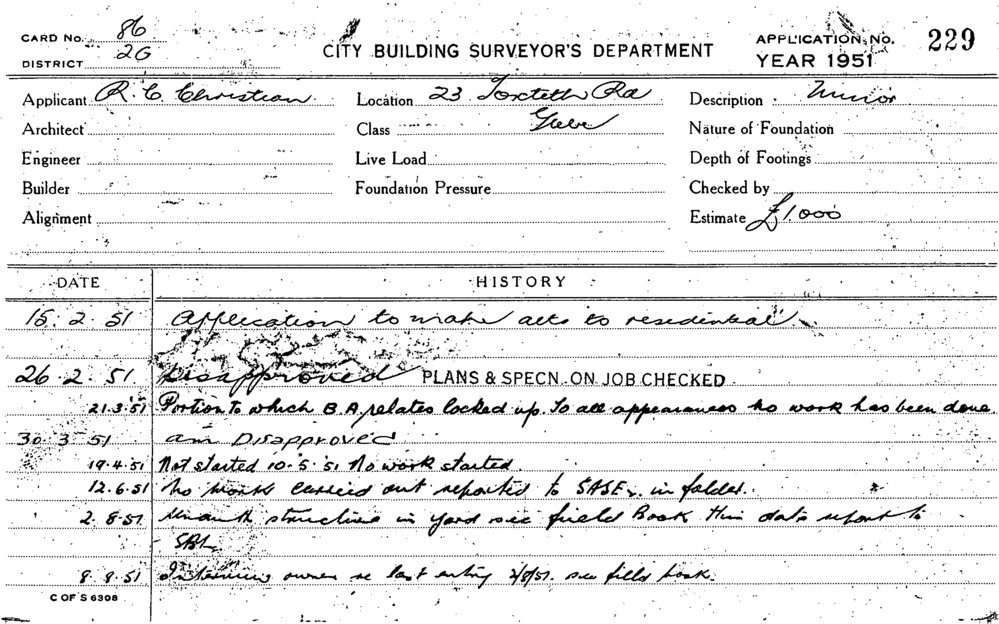 CARD No. 86
DISTRICT 2G
CITY BUILDING SURVEYOR'S DEPARTMENT
APPLICATION No. 229
YEAR 1951
Applicant R. C. Christian Location 23 Toxteth Rd Description Minor
Architect Class Glebe Nature of Foundation
Engineer Live Load Depth of Footings
Builder Foundation Pressure Checked by
Alignment Estimate £1000
DATE HISTORY
15.2.51 Application to make alts to residential
26.2.51 Disapproved PLANS & SPECN. ON JOB CHECKED
21.3.51 Portion to which B.A. relates locked up. To all appearances no work has been done
30.3.51 am Disapproved
19.4.51 Not started 10.5.51 No work started.
12.6.51 No work carried out reported to in folder.
2.8.51 structure in yard see field Book this date report to
SBI.
8.8.51 Interview owner re last entry 2/8/51. see field book.
C OF S 6308